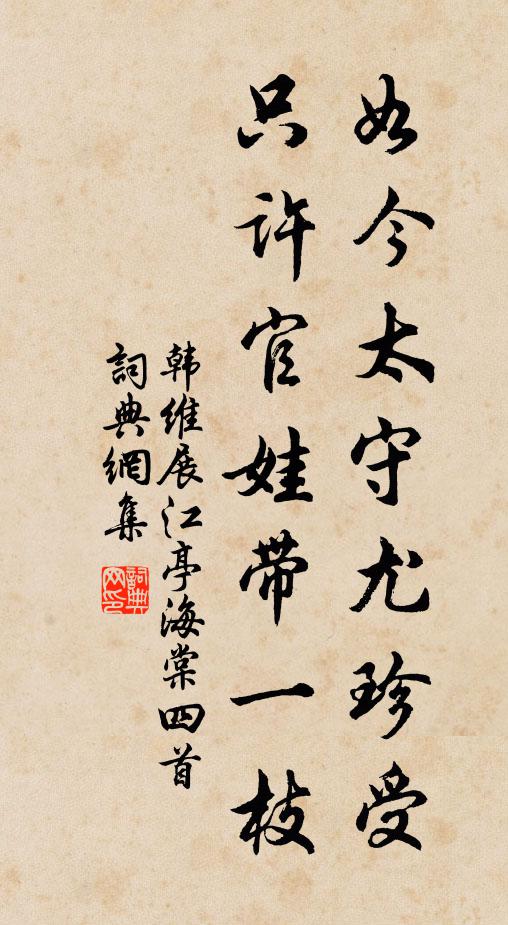 如今太守尤珍受
只许官娃带一枝
韩维展江亭海棠四首
詞典網集
詞典网印